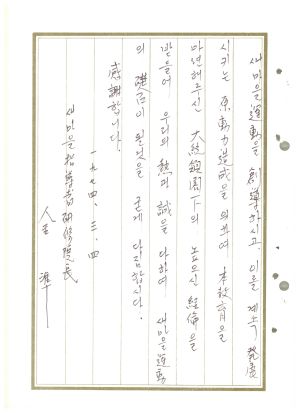 새마을運動을 創導하시고, 이를 계속 發展
시키는 原動力造成을 위하여 本敎育을
마련해주신 大統領閣下의 높으신 經倫을
받들어 우리의 熱과 誠을 다하여 새마을運動
의 礎石이 될것을 굳게 다짐합니다.
感謝합니다.
一九七四. 三. 四
새마을指導者硏修院長
金 準